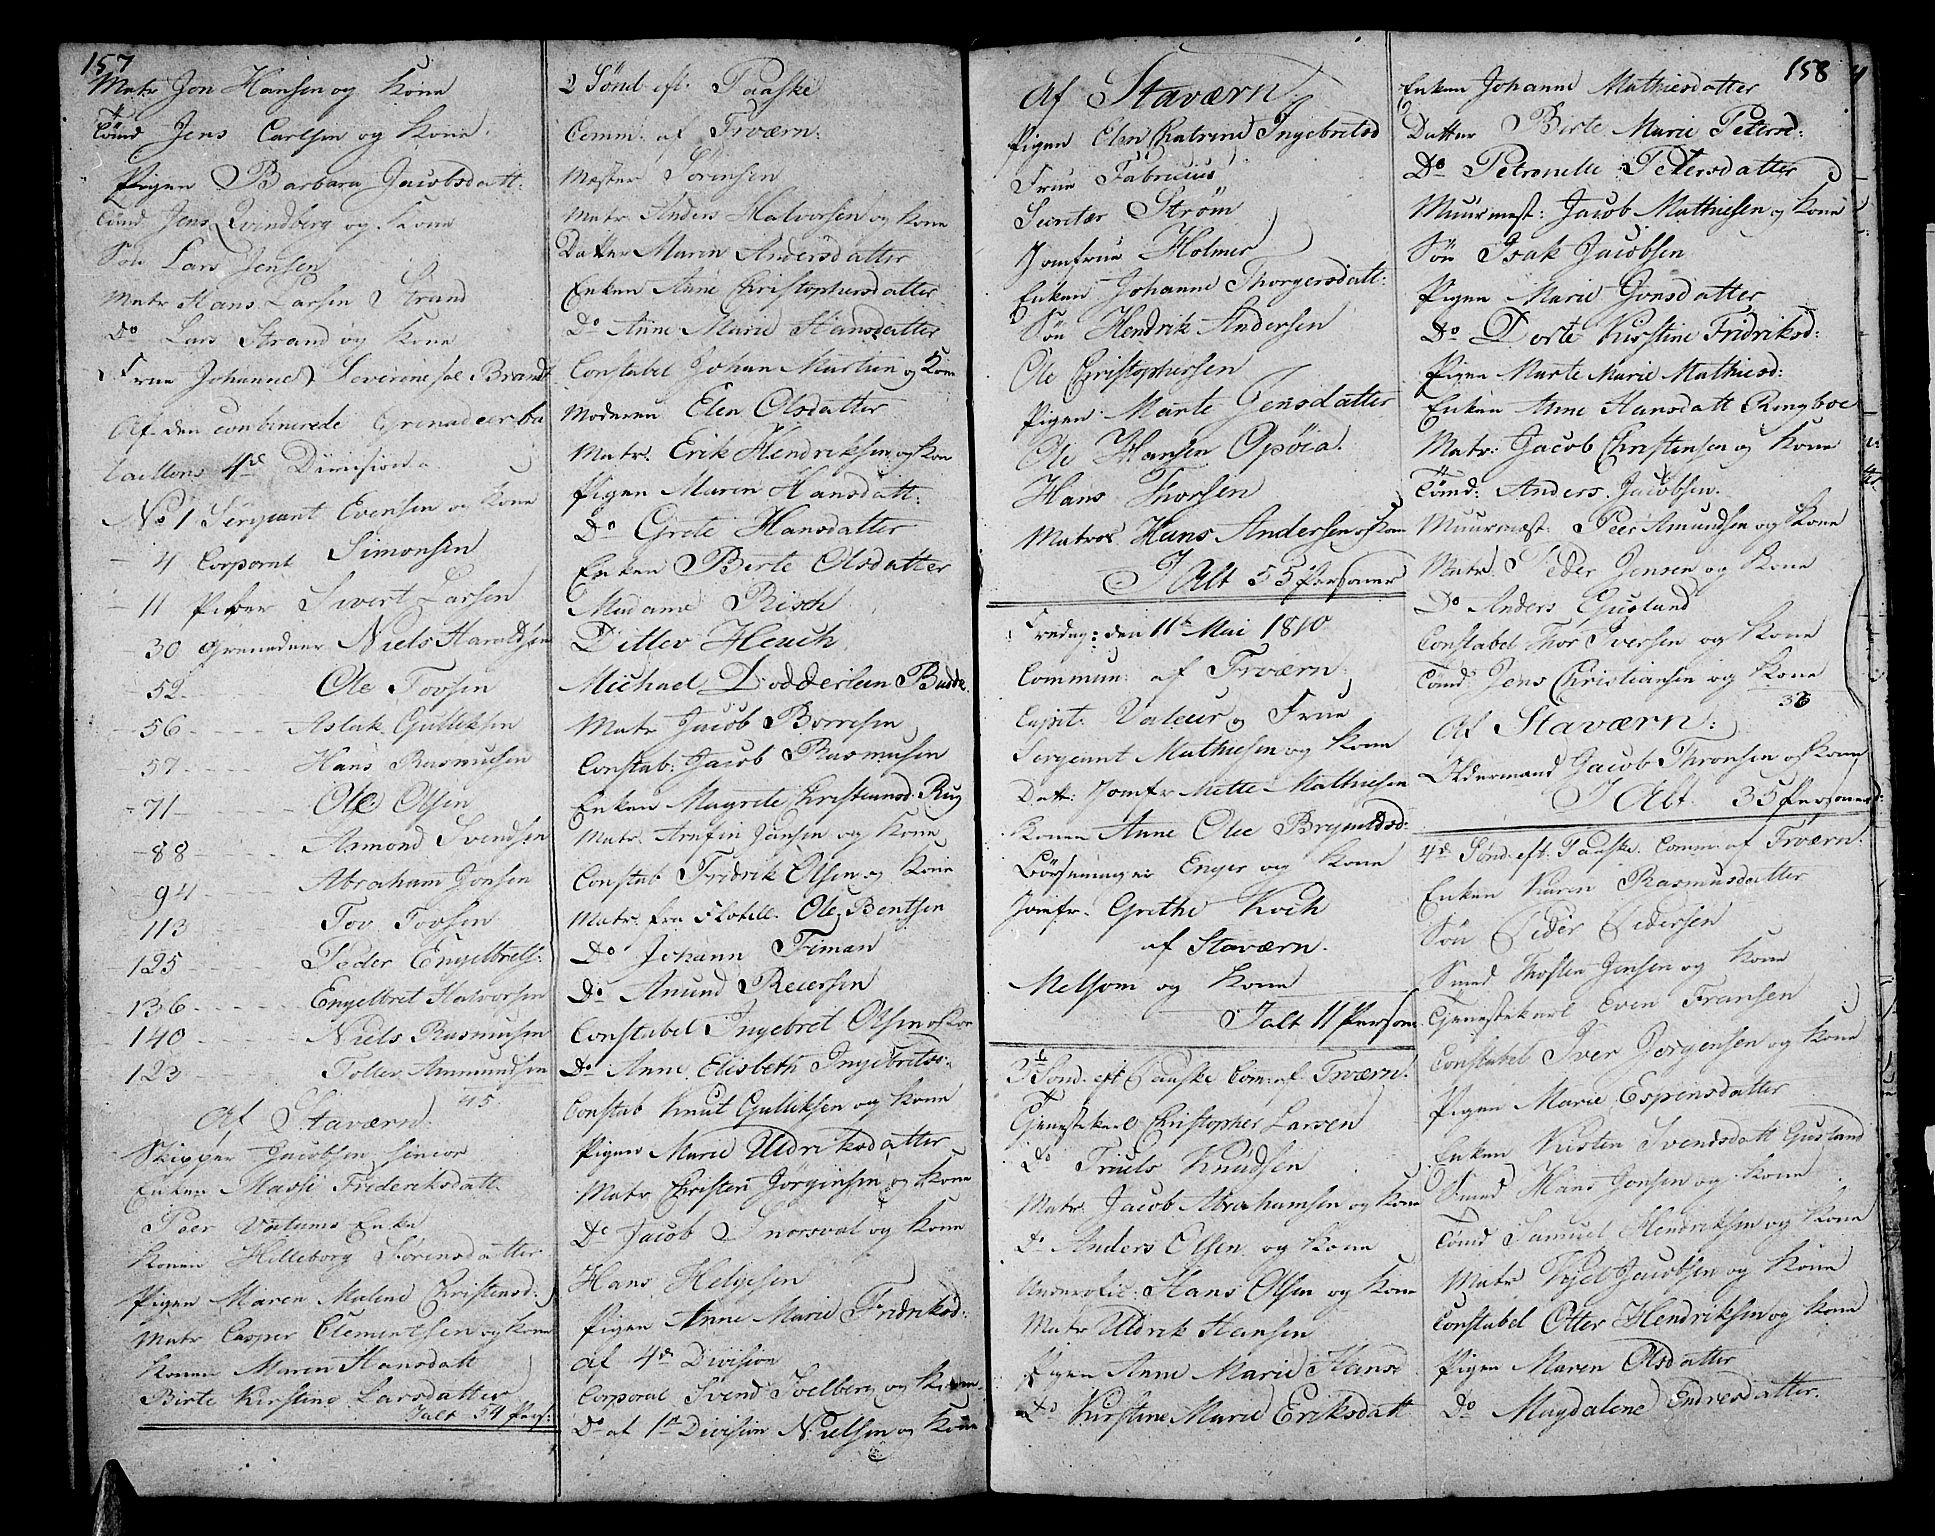 157
Matr Jon Hansen og Kone
Tömd Jens Carlsen og Kone
Pigen Barbara Jacobsdatt:
Tömd Jens Qvindberg og Kone
Sön Lars Jensen
Matr Hans Larsen Strand
Do Lars Strand og Kone
Frue Johanne Severine sal Brandt
Af den combinerede Grenadeer ba
taillons 4de Division
No 1 Sergeant Evensen og Kone
- 4 Corporal Simonsen
- 11 Piber Sivert Larsen
- 30 Grenadeer Niels Haraldsen
- 52 Ole Tovsen
- 56 Aslak Gulliksen
- 57 Hans Rasmusen
- 71 Ole Olsen
- 88 Asmond Svendsen
94 Abraham Jonsen
113 Tov Tovsen
125 Peder Engelbrets:
136 Engelbret Halvorsen
140 Niels Rasmusen
123 Tollef Ammundsen
45
Af Staværn:
Skipper Jacobsen senior
Enken Massi Frideriksdatt.
Peer Vatums Enke
Konen Hilleborg Sörensdatter
Pigen Maren Malene Christensd:
Matr Casper Clementsen og Kone
Konen Maren Hansdatt
Birte Kirstine Larsdatter
Jalt 54 Pers:
2 Sönd eft. Paaske
Comm: af Frværn:
Mæster Sörensen
Matr. Anders Halvorsen og Kone
Datter Maren Andersdatter
Enken Anne Christophersdatter
Do Anne Marie Hansdatter
Constabel Johan Martin og Kone
Moderen Elen Olsdatter
Matr. Erik Hendriksen og Kone
Pigen Maren Hansdatt:
Do Grete Hansdatter
Enken Berte Olsdatter
Madame Risch
Ditlev Heuch
Michael Dodderlein Budde
Matr Jacob Börresen
Constab: Jacob Rasmusen
Enken Magrete Christiansd. Rug
Matr. Arnfin Jansen og Kone
Constab Fridrik Olsen og Kone
Matr. fra Flotill. Ole Bentsen
Do Johann Timan
Do Amund Reiersen
Constabel Ingebret Olsen og Kone
Do Anne Elisbeth Ingebrets:
Constab Knut Gulliksen og Kone
Pigen Marie Uldriksdatter
Matr Christen Jörgensen og Kone
Do Jacob Snorsval og Kone
Hans Helgesen
Pigen Anne Marie Fridriksd:
af 4de Division
Corporal Svend Soelberg og Kone
Do af 1ste Division Nielsen og Kone
Af Staværn.
Pigen Elen Chatrine Ingebretsd
Frue Fabricius
Secretær Ström
Jomfrue Holmer
Enken Johanne Thorgersdatt:
Sön Hendrik Andersen
Ole Christophersen
Pigen Marte Jensdatter
Ole Hansen Opöia.
Hans Thorsen
Matros Hans Andersen og Kone
I Alt 55 Personer
Fredag: den 11te Mai 1810
Commun: af Frværn:
Capit: Valeur og Frue
Sergeant Mathiesen og Kone
Datt: Jomfr Mette Mathiesen
Konen Anne Olee Bryndsd:
Enger og Kone
Jomfr. Grethe Koch
af Staværn.
Melsom og Kone
Jalt 11 Person
3die Sönd. eft Paaske Com: af Frværn:
Gjenestekarl Christopher Larsen
Do Truels Knudsen
Matr. Jacob Abrahamsen og Kone
Do Anders Olsen og Kone
Underofic: Hans Olsen og Kone
Matr Uldrik Hansen
Pigen Anne Marie Hansd
Do Kirstine Marie Eriksdatt
158
Enken Johanne Mathiesdatter
Datter Birte Marie Petersd:
Do Petronelle Petersdatter
Muurmest: Jacob Mathiesen og Kone
Sön Isak Jacobsen
Pigen Marie Jonsdatter
Do Dorte Kirstine Fridriksd:
Pigen Marte Marie Mathiesd:
Enken Anne Hansdatt Ringboe
Matr: Jacob Christensen og Kone
Tömd: Anders Jacobsen.
Muurmest: Peer Amundsen og Kone
Matr. Peder Jensen og Kone
Do Anders Gusland
Constabel Thor Iversen og Kone
Tömd Jens Christiansen og Kone
33
Af Staværn:
Oldermand Jacob Thronsen og Kone
I Alt. 35 Personer
4de Sönd. eft. Paaske. Comm: af Frværn:
Enken Karen Rasmusdatter
Sön Peder Pedersen
Smed Thosten Jensen og Kone
Gjenestekarl Even Fransen
Constabel Iver Jörgensen og Kone
Pigen Marie Espensdatter
Enken Kirsten Svendsdatt Gusland
Smed Hans Jonsen og Kone
Tömd Samuel Hendriksen og Kone
Matr Kjel Jacobsen og Kone
Constabel Otter Hendriksen og Kone
Pigen Maren Olsdatter
Do Magdalene Endresdatter.